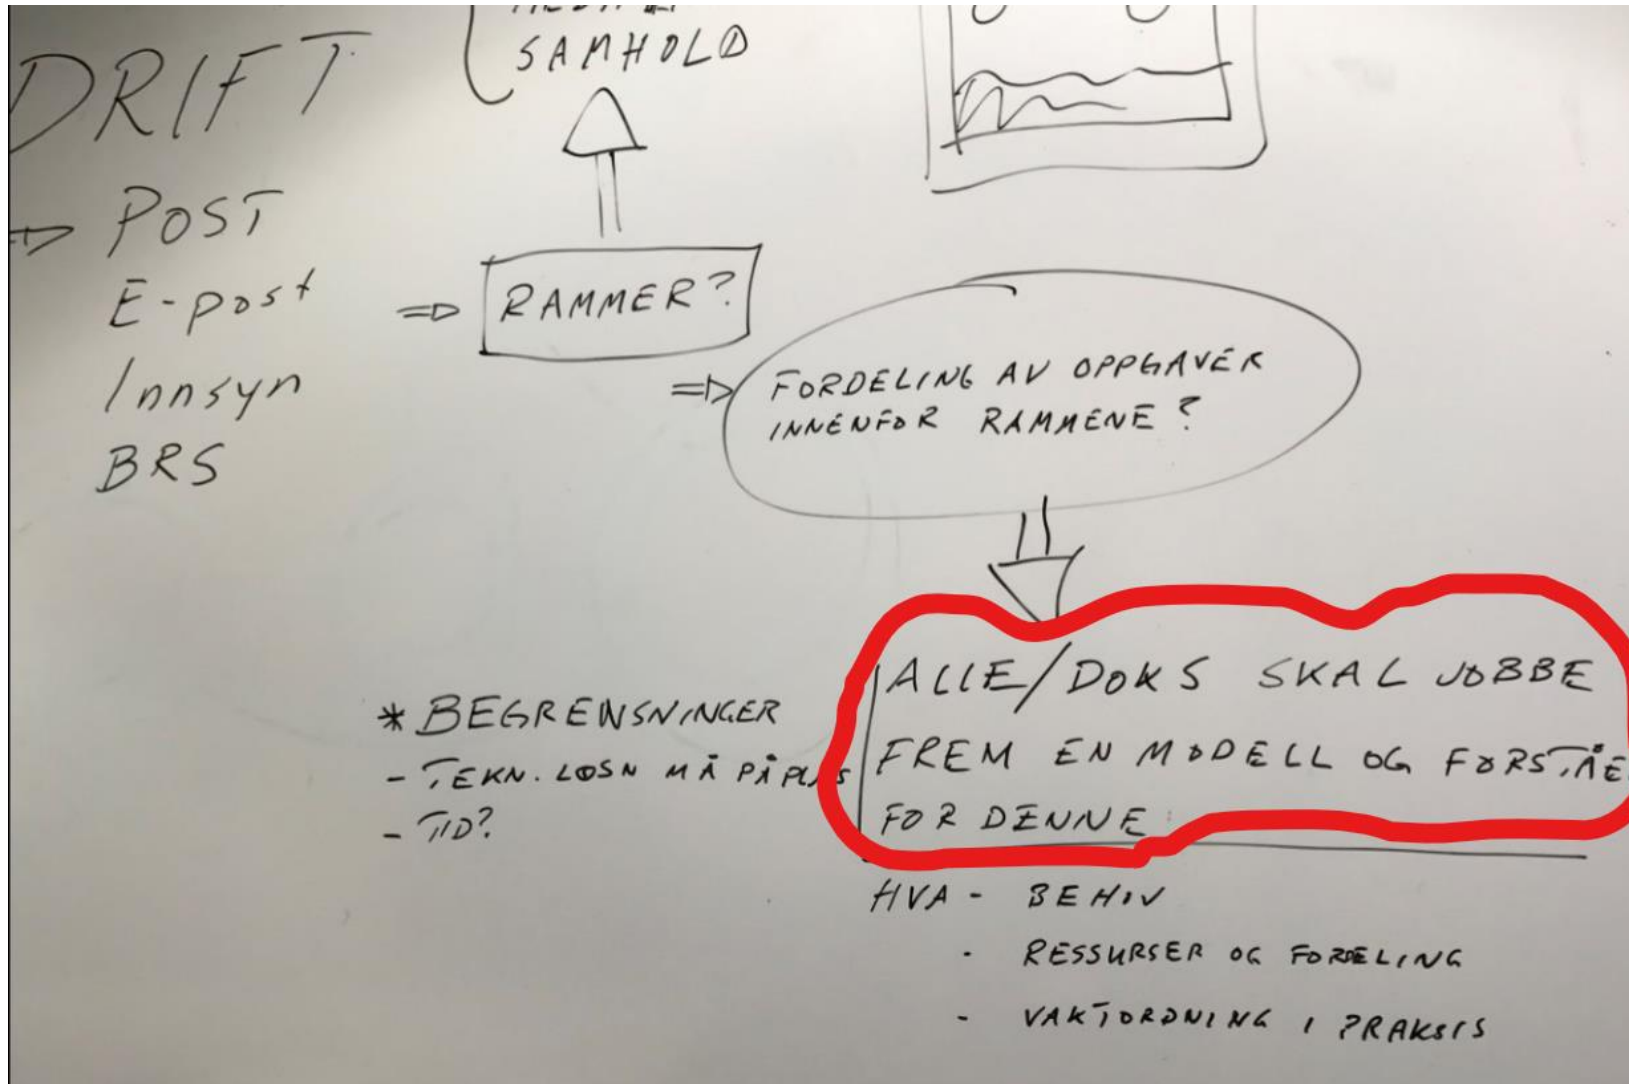 SAMHOLD
DRIFT
⇒ POST
E-post
Innsyn
BRS
⇒ RAMMER?
⇒ FORDELING AV OPPGAVER
INNENFOR RAMMENE?
* BEGRENSNINGER
- TEKN. LØSN MÅ PÅ PLASS
- TID?
ALLE/DOKS SKAL JOBBE
FREM EN MODELL OG
FOR DENNE
HVA - BEHOV
- RESSURSER OG FORDELING
- VAKTORDNING I PRAKSIS